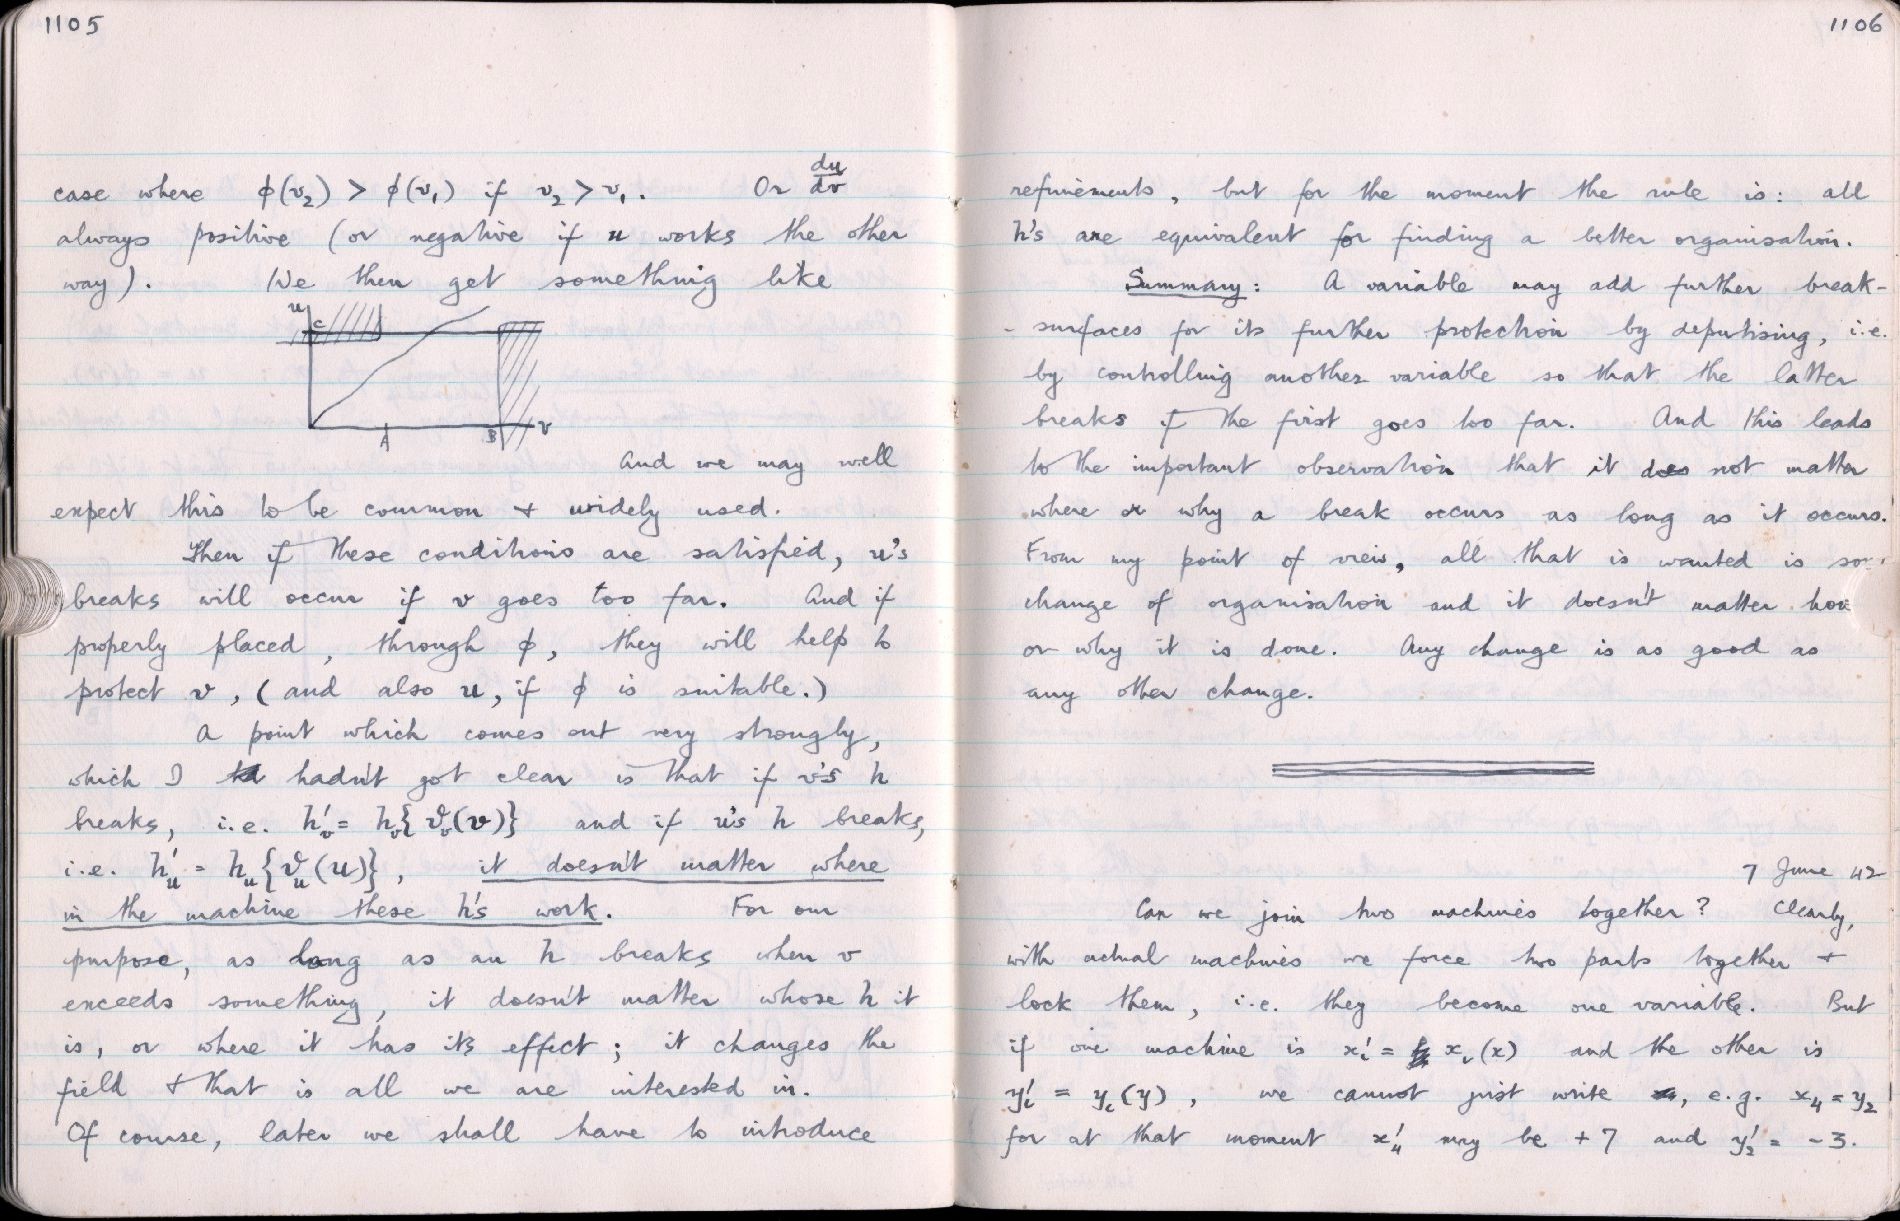 1105
case where φ(v₂) > φ(v₁) if v₂ > v₁. Or du/dv
always positive (or negative if u works the other
way). We then get something like
u
C
A B v
And we may well
expect this to be common + widely used.
Then if these conditions are satisfied, u's
breaks will occur if v goes too far. And if
properly placed, through φ, they will help to
protect v, (and also u, if φ is suitable.)
A point which comes out very strongly,
which I hadn't got clear is that if v's h
breaks, i.e. h'ᵥ = hᵥ{ϑᵥ(v)} and if u's h breaks,
i.e. h'ᵤ = hᵤ{ϑᵤ(u)}, it doesn't matter where
in the machine these h's work. For our
purpose, as long as an h breaks when v
exceeds something, it doesn't matter whose h it
is, or where it has its effect; it changes the
field + that is all we are interested in.
Of course, later we shall have to introduce
1106
refinements, but for the moment the rule is: all
h's are equivalent for finding a better organisation.
Summary: A variable may add further break-
-surfaces for its further protection by deputising, i.e.
by controlling another variable so that the latter
breaks if the first goes too far. And this leads
to the important observation that it does not matter
where or why a break occurs as long as it occurs.
From my point of view, all that is wanted is so
change of organisation and it doesn't matter how
or why it is done. Any change is as good as
any other change.
7 June 42
Can we join two machines together? Clearly,
with actual machines we force two parts together +
lock them, i.e. they become one variable. But
if one machine is xᵢ' = xᵢ(x) and the other is
yᵢ' = yᵢ(y), we cannot just write, e.g. x₄ = y₂
for at that moment x₄' may be +7 and y₂' = -3.